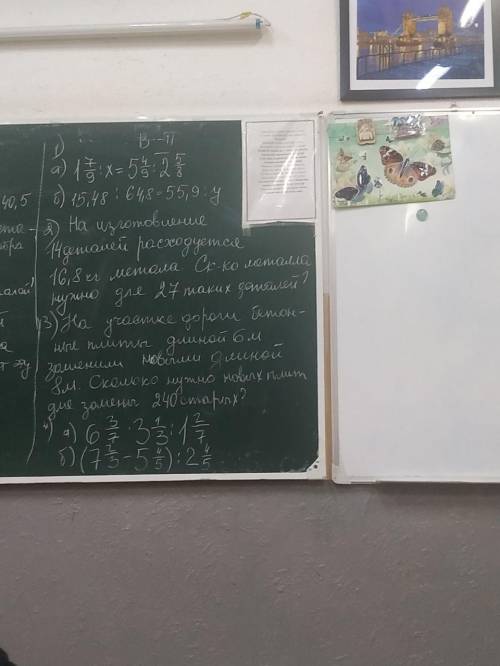 40,5
1) В-II
а) 1 7/9 : x = 5 4/9 : 2 5/8
б) 15,48 : 648 = 55,9 : y
2) На изготовление
14 деталей расходуется
16,8 кг метала Ск-ко металла
нужно для 27 таких деталей?
3) На участке дороги бетон-
ные плиты длиной 6 м
заменили новыми длиной
8м. Сколоко нужно новых плит
для замены 240 старых?
4) а) 6 3/7 : 3 1/3 : 1 2/7
б) (7 2/3 - 5 4/5) : 2 4/5